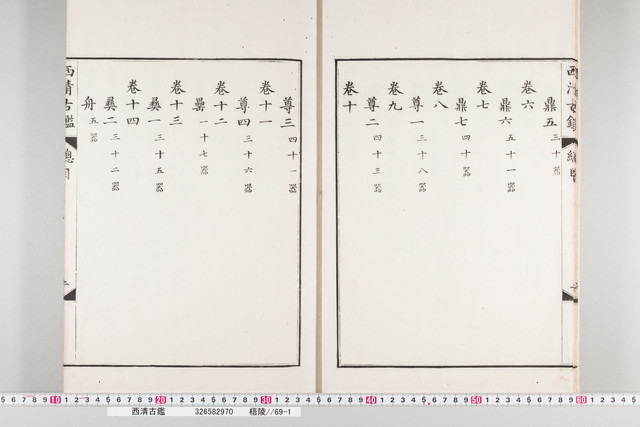 鼎五 三十器
卷六
鼎六 五十一器
卷七
鼎七 四十器
卷八
尊一 三十八器
卷九
尊二 四十三器
卷十
尊三 四十一器
卷十一
尊四 三十六器
卷十二
罍 一十七器
卷十三
彝一 三十五器
卷十四
彝二 三十二器
舟 五器
西清古鑑 總目
西清古鑑 326582970 梧陵//69-1